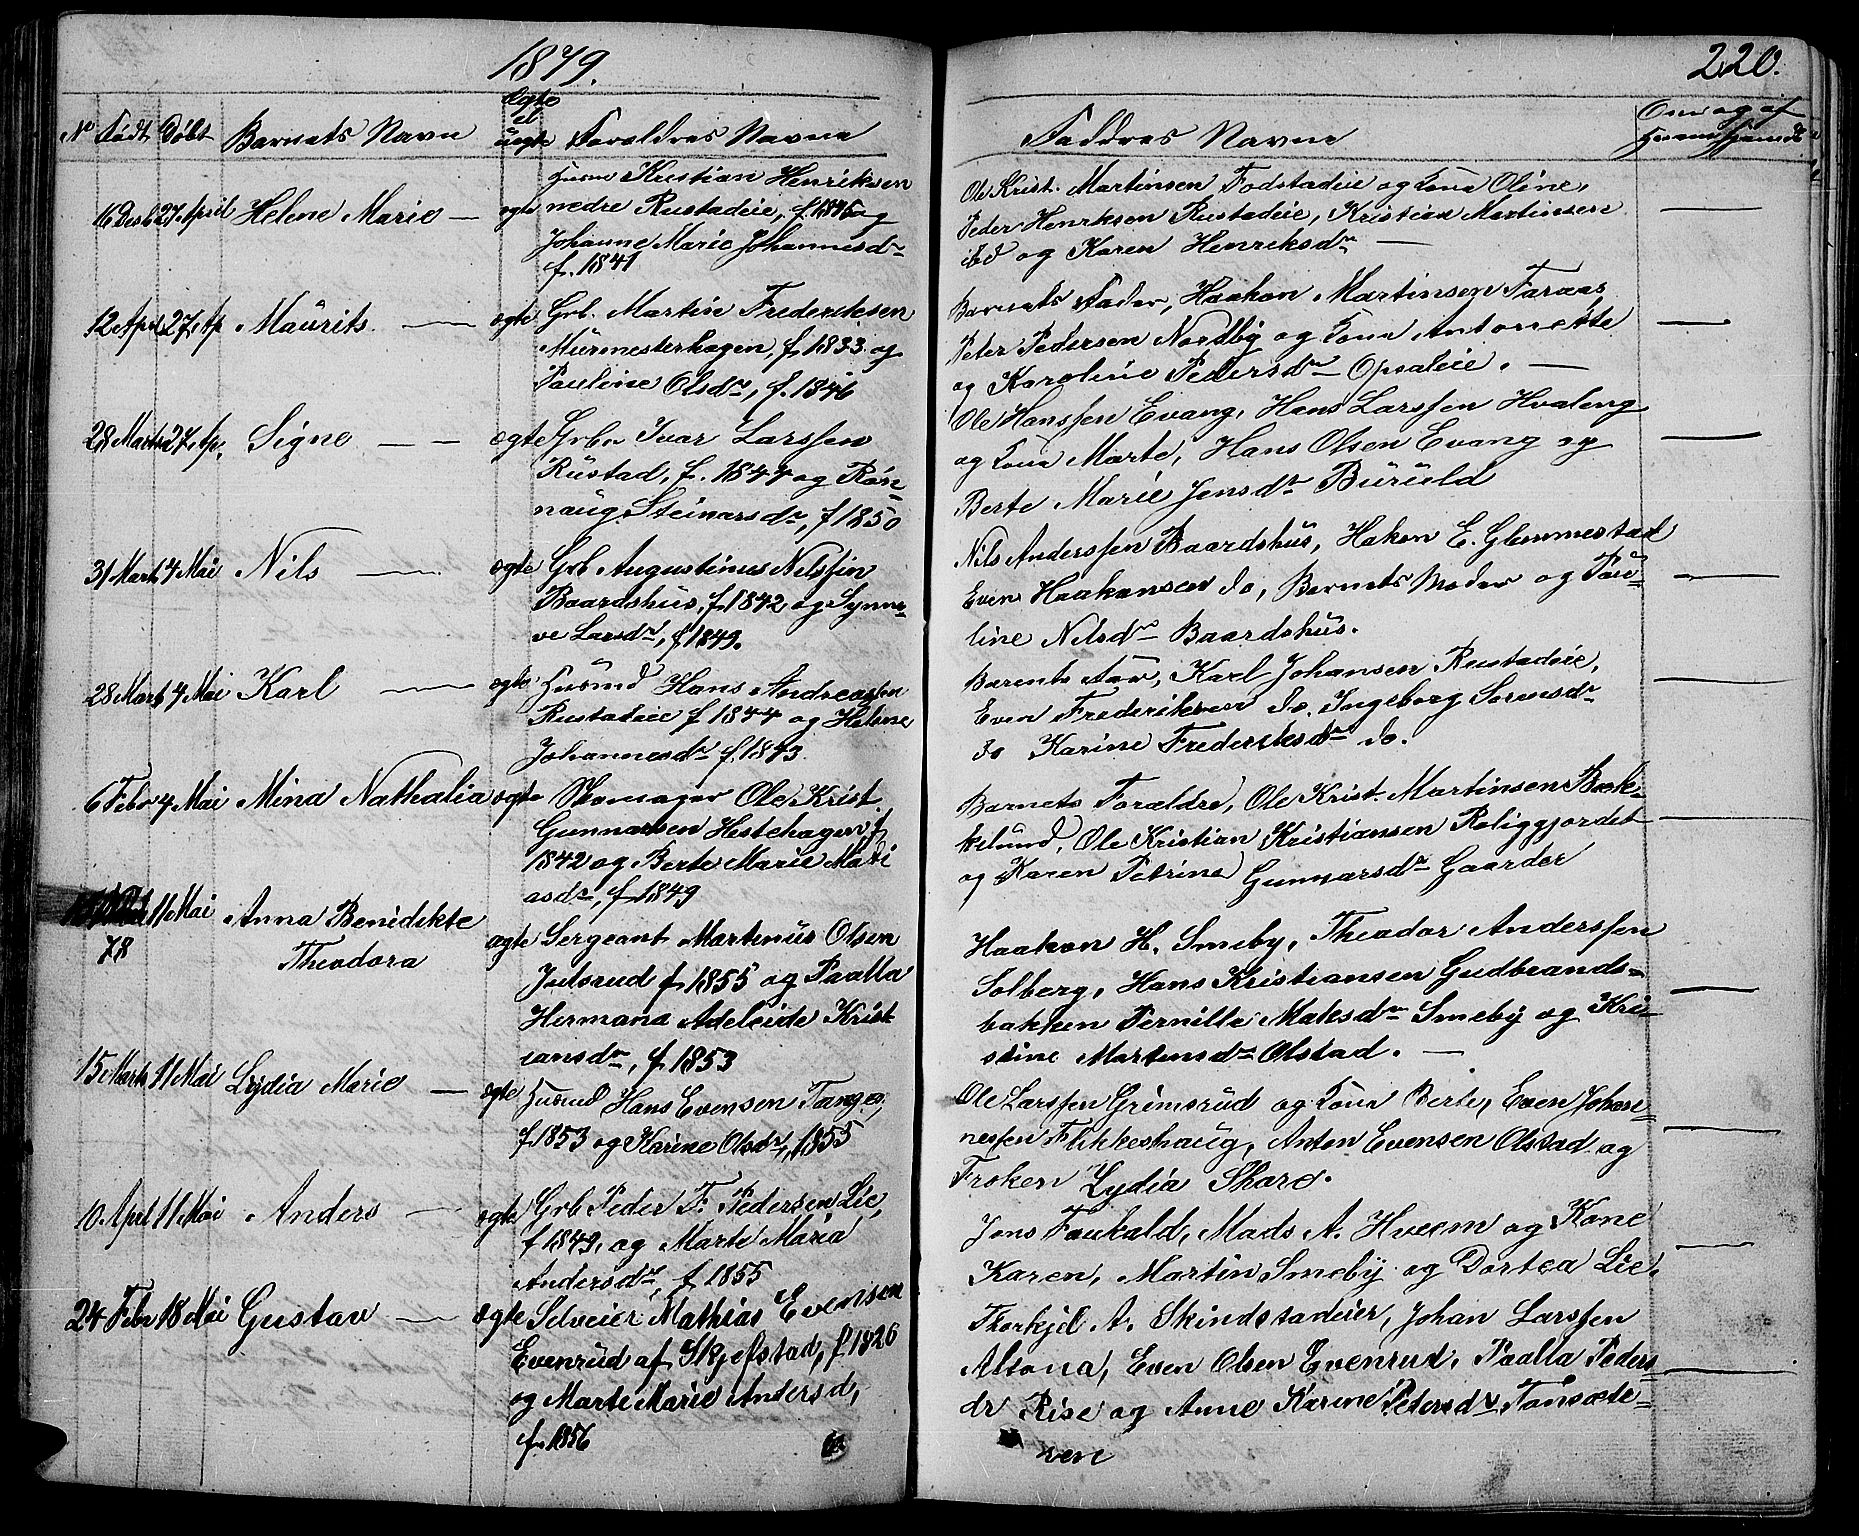 1879.
220.
No Født Døbt Barnets Navn Ægte el uægte Forældres Navne
Faddres Navne
Om og af hvem
16 Desb 27 April Helene Marie — ægte
Husm Kristian Henriksen
nedre Rustadeie, f. 1845 og
Johanne Marie Johannesdr
f. 1841
Ole Krist. Martinsen Fodstadeie og Kona Oline,
Peder Henriksen Rustadeie, Kristian Martinsen
ibd og Karen Henriksdr —
12 April 27 Ap Maurits. — ægte
Grb. Martin Frederiksen
Murmesterhagen, f. 1833 og
Pauline Olsdr, f. 1846
Barnets Fader, Haakon Martinsen Faraas
Peter Pedersen Nordby og Kona Antonette
og Karoline Pedersdr Opsaleie. —
28 Marts 27 Ap. Signe — — ægte
Grbr Ivar Larssen
Rustad, f. 1844 og Røn-
naug Steinarsdr, f 1850
Ole Hanssen Evang, Hans Larssen Hvaleng
og Kona Marte, Hans Olsen Evang og
Berte Marie Jensdr Buruld
31 Marts 4 Mai Nils — ægte
Grb Augustinus Nilssen
Baardshus, f. 1842 og Synnø-
ve Larsdr, f 1849.
Nils Anderssen Baardshus, Haken E. Glemmestad
Even Haakensen do, Barnets Moder og Pau-
line Nilsdr Baardshus.
28 Marts 4 Mai Karl — ægte
Husmd Hans Andreassen
Rustadeie f 1844 og Helene
Johannesdr f. 1843
Barents Far, Karl Johansen Rustadeie,
Even Frederiksen do, Ingeborg Sorensdr
do Karine Frederiksdr do.
6 Febr 4 Mai Mina Nathalia ægte
Skomager Ole Krist.
Gunnarsen Hestehagen, f
1842 og Berte Marie Mati
asdr, f. 1849
Barnets Forældre, Ole Krist. Martinsen Bæk-
kelund, Ole Kristian Kristiansen Roliggjordet
og Karen Petrine Gunnarsdr Gaarder
78 11 Mai Anna Benedikte
Theodora
ægte Sergeant Martinus Olsen
Julsrud f 1855 og Paalla
Hermana Adeleide Krist
iansdr, f. 1853
Haakon H. Smeby, Theodor Anderssen
Solberg, Hans Kristiansen Gudbrands-
bakken Pernille Maksdr Smeby og Kri-
stine Martinsdr Olstad. —
15 Marts 11 Mai Lydia Marie — ægte
Husmd Hans Evensen Tangen,
f 1853 og Karine Olsdr, 1855
Ole Larssen Grimsrud og Kona Berte, Even Johan-
nessen Flikkeshaug, Anton Evensen Olstad og
Frøken Lydia Skard.
10 April 11 Mai Anders — ægte
Grb Peder F. Pedersen Lie,
f 1849, og Marte Maria
Andersdr, f. 1855
Jens Faukald, Mads A. Hveem og Kone
Karen, Martin Smeby og Dortea Lie.
24 Febr 18 Mai Gustav — ægte
Selveier Mathias Evensen
Evenrud af Skjefstad, f 1826
og Marte Marie Andersd,
f. 1856
Thorkjel A. Skindstadeier, Johan Larssen
Alsona, Even Olsen Evenrud, Paalla Peders
dr Rise og Anne Karine Petersdr Tønsæte-
ren